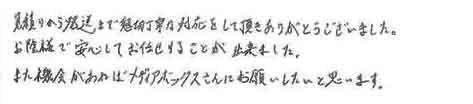 見積りから発送まで懇切丁寧な対応をして頂きありがとうございました。
お陰様で安心してお任せすることが出来ました。
また機会があればメディアボックスさんにお願いしたいと思います。